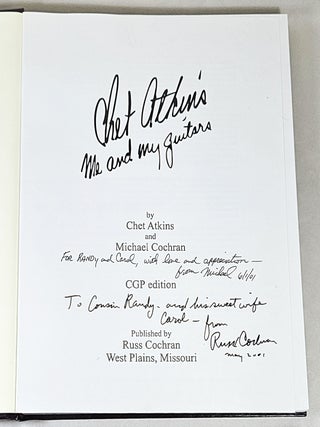 Chet Atkins
Me and my guitars
by
Chet Atkins
and
Michael Cochran
For Randy and Carol, with love and appreciation —
from Michael 6/1/01
CGP edition
To Cousin Randy - and his sweet wife
Carol — from
Russ Cochran
may 2001
Published by
Russ Cochran
West Plains, Missouri